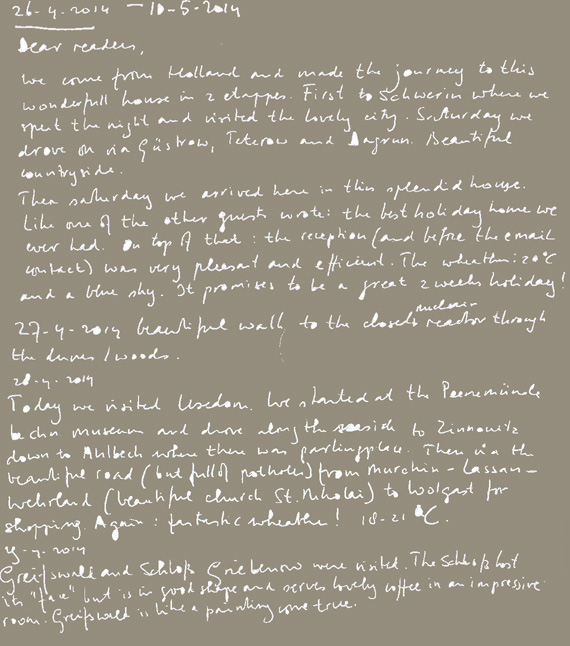 26-4-2014 - 10-5-2014
Dear readers,
we come from Holland and made the journey to this
wonderfull house in 2 etappes. First to Schwerin where we
spent the night and visited the lovely city. Saturday we
drove on via Güstrow, Teterow and Dargun. Beautiful
countryside.
Then saturday we arrived here in this splendid house.
Like one of the other guests wrote: the best holiday home we
ever had. On top of that: the reception (and before the email
contact) was very pleasant and efficient. The wheather: 20°C
and a blue sky. It promises to be a great 2 weeks holiday!
27-4-2014 beautiful walk to the closed nuclear reactor through
the dunes/woods.
28-4-2014
Today we visited Usedom. We started at the Peenemünde
techn museum and drove along the seaside to Zinnowitz
down to Ahlbeck where there was parkingplace. Then via the
beautiful road (but full of potholes) from Murchin - Lassan -
Wehrland (beautiful church St. Nikolai) to Wolgast for
shopping. Again: fantastic wheather! 18-21 °C.
29-4-2014
Greifswald and Schloß Griebenow were visited. The Schloß lost
its "face" but is in good shape and serves lovely coffee in an impressive
room. Greifswald is like a painting come true.